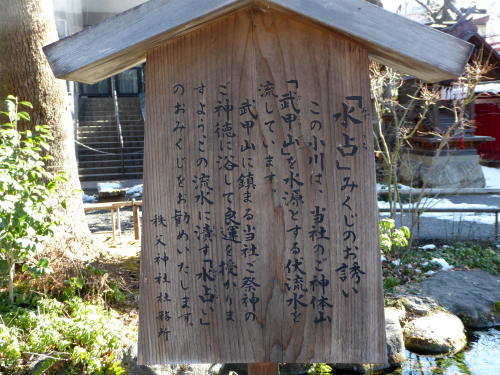 「水占」みくじのお誘い
みずうら
この小川は、当社のご神体山
「武甲山」を水源とする伏流水を
流しています。
武甲山に鎮まる当社ご祭神の
ご神徳に浴して良運を授かりま
すようこの流水に漬す〝水占い〟
のおみくじをお勧めいたします。
秩父神社社務所